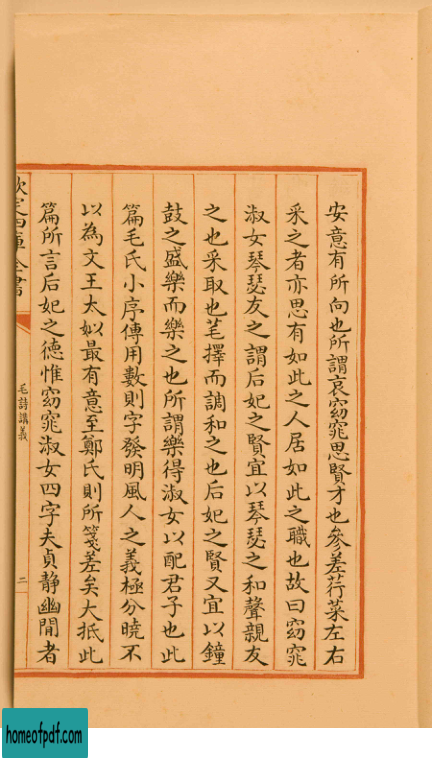 安意有所向也所謂哀窈窕思賢才也參差荇菜左右
采之者亦思有如此之人居如此之職也故曰窈窕
淑女琴瑟友之謂后妃之賢宜以琴瑟之和聲親友
之也采取也芼擇而調和之也后妃之賢又宜以鐘
鼓之盛樂而樂之也所謂樂得淑女以配君子也此
篇毛氏小序傳用數則字發明風人之義極分曉不
以為文王太姒最有意至鄭氏則所箋差矣大抵此
篇所言后妃之德惟窈窕淑女四字夫貞静幽閒者
欽定四庫全書
毛詩講義
二
homeofpdf.com